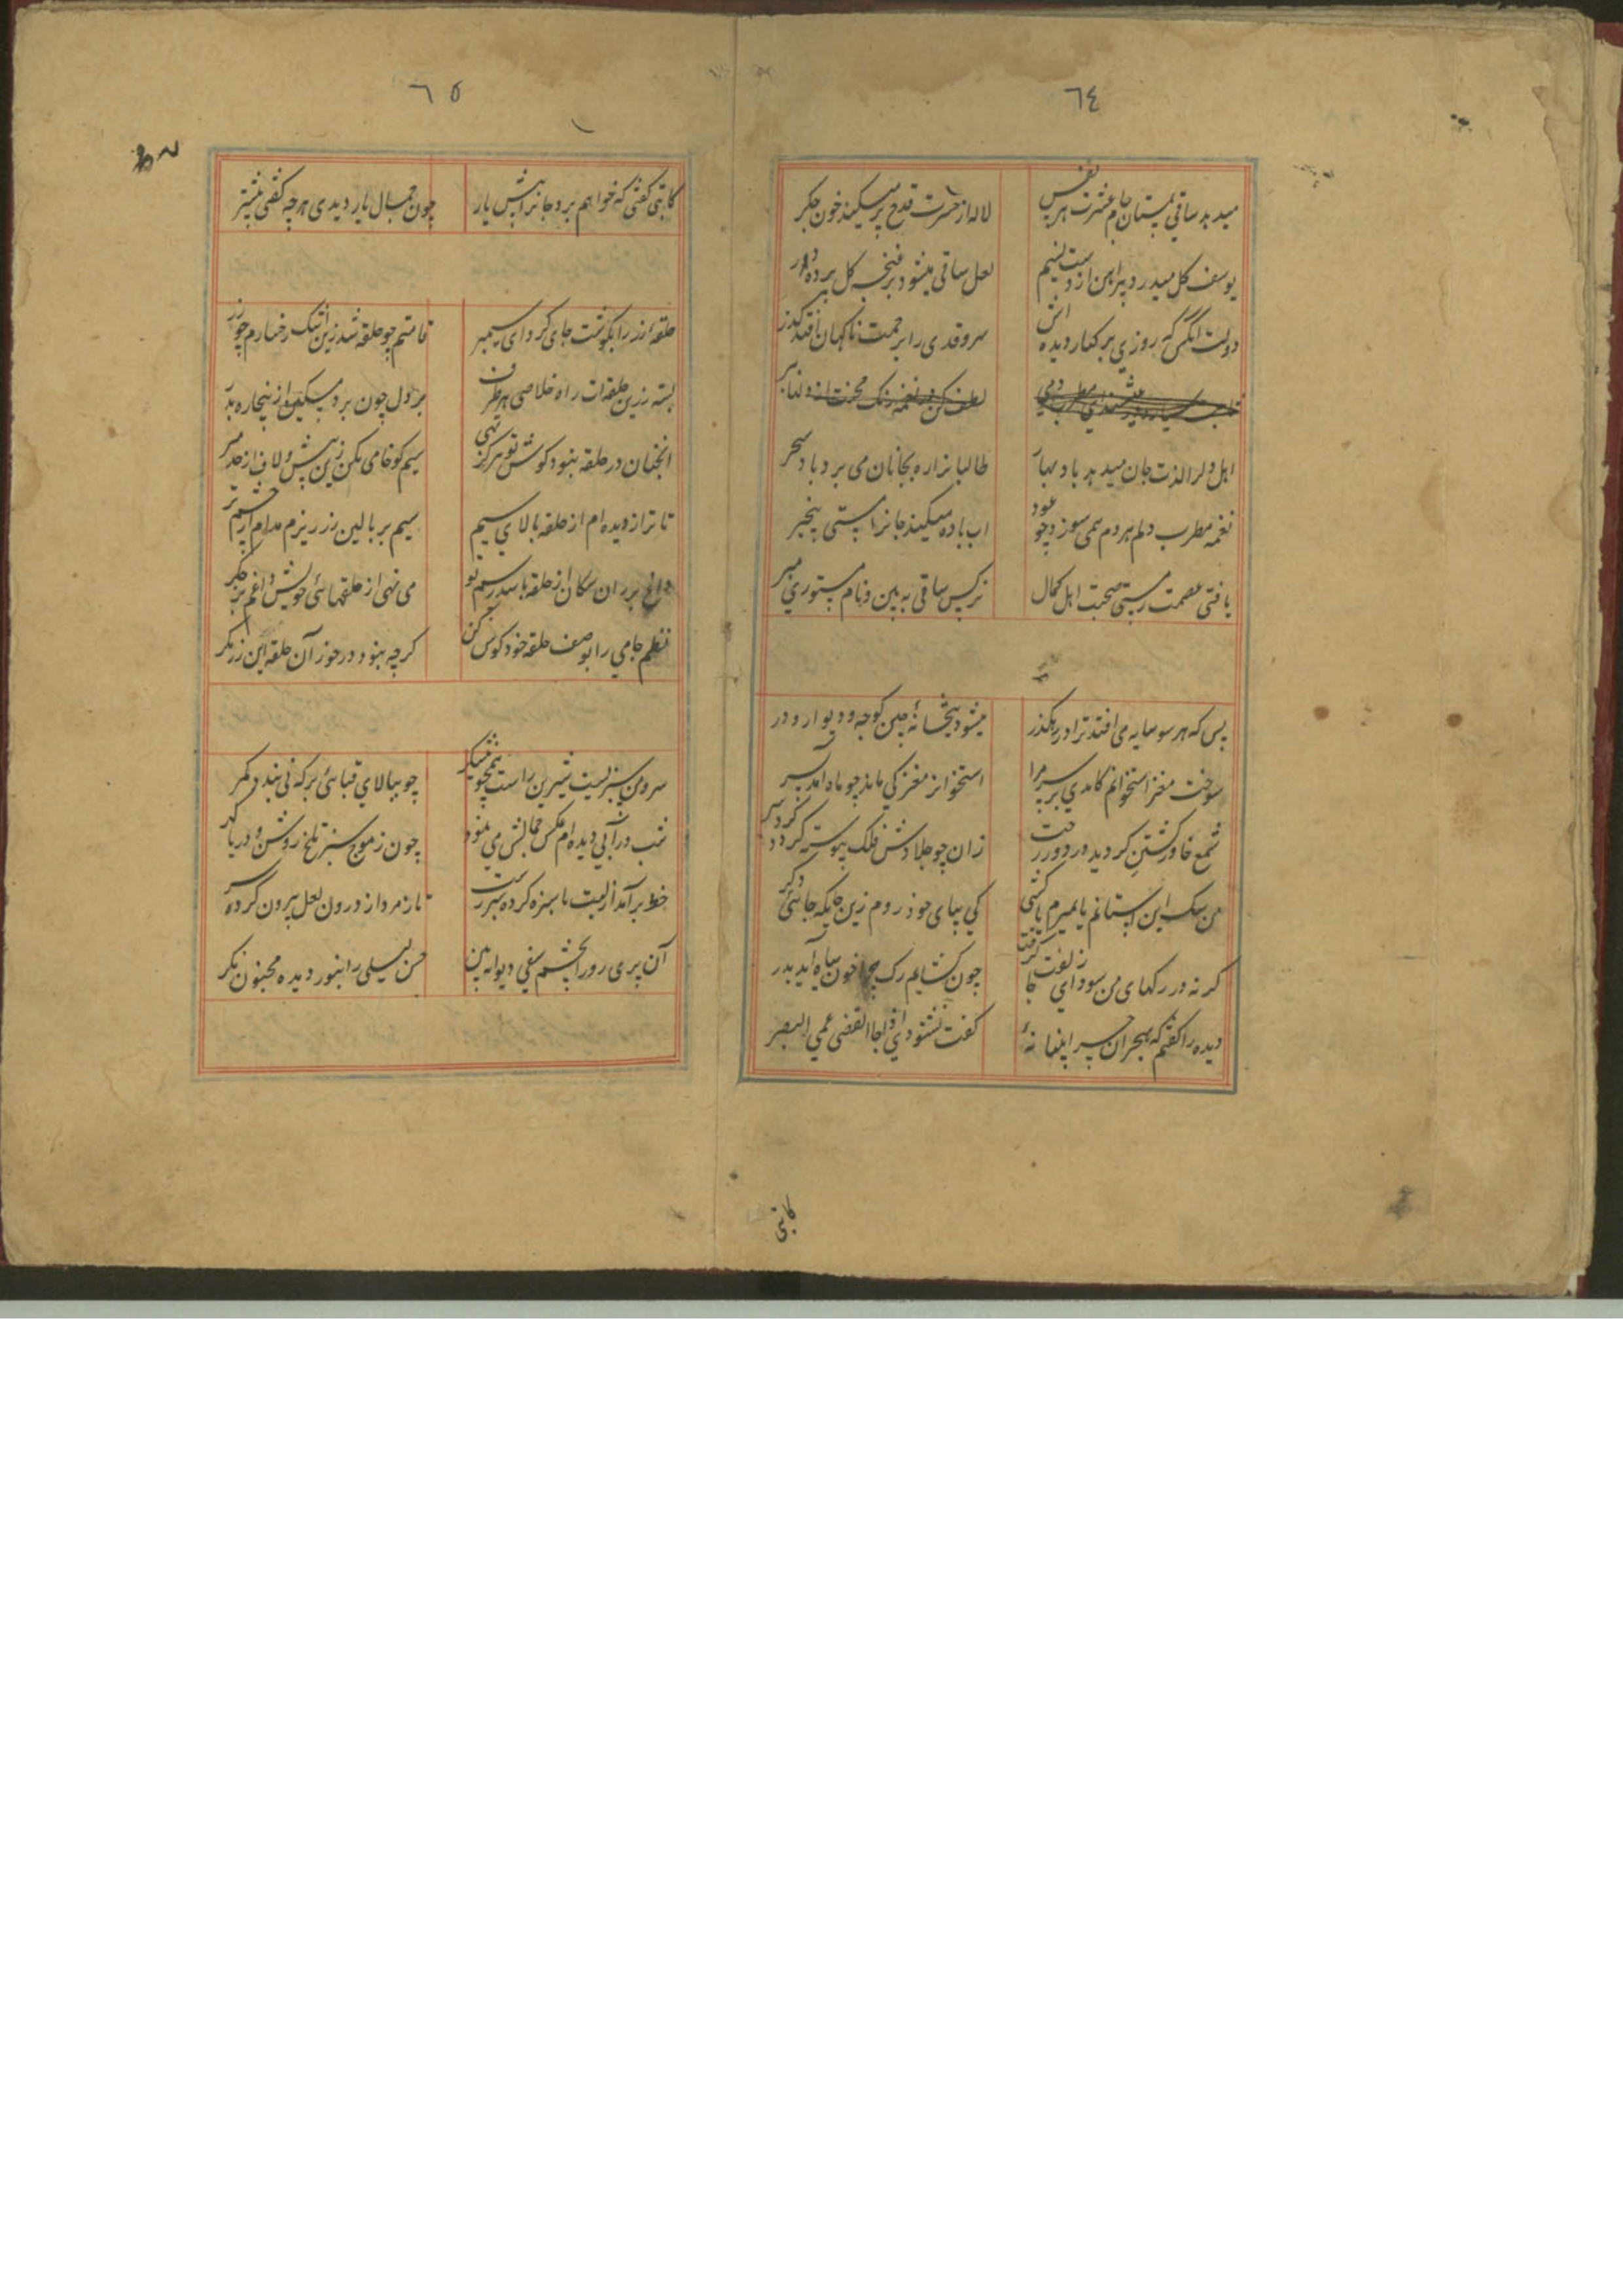 ٦٤
میدهد ساقی بمستان جام عشرت هر نفس لاله از حسرت قدح پر میکند خون جگر
یوسف گل میدرد پیراهن از دست نسیم لعل ساقی میشود بر غنچه گل پرده در
دولت آنکس که روزی بر کنار دیده اش سرو قدی را برحمت ناکهان افتد گذر
اهل دل را لذت جان میدهد باد بهار طالبانرا ره بجانان می برد باد سحر
نغمه مطرب دلم هر دم همی سوزد چو عود آب باده میکند جانرا ز مستی بیخبر
یافتی عصمت ز مستی صحبت اهل کمال نرگس ساقی به بین و نام مستوری مبر
بس که هر سو سایه می افتد ترا در رهگذر میشود بتخانهٔ چین کوچه و دیوار و در
سوخت مغز استخوانم کامدی بر سر مرا استخوانرا مغز کی ماند چو ماه آمد بسر
شمع خاور کشتن گردید در دور رخت زان چو جلادش فلک پیوسته گردد گرد سر
من سگ این آستانم یا بمیرم یا کشی کی بپای خود روم زین جایگه جائی دگر
گر نه در رگهای من سودای زلفت جا گرفت چون گشایم رگ چرا خون سیاه آید بدر
دیده را گفتم که بهجران بسر گفت نشنودی اذا جاء القضی عمی البصر
کاتبی
٦٥
کاتبی گفتی که خواهم برد جانرا پیش یار چون جمال یار دیدی هرچه گفتی بیشتر
حلقهٔ زر را بگوشت جای کرد ای سیمبر قامتم چو حلقه شد زین اشک رخسارم چو زر
بسته زرین حلقهات راه خلاصی هر طرف مرغ دل چون برد مسکین از بیچاره بدر
آنچنان در حلقه نبود گوش تو هرگز تهی سیم گو خامی مکن زین پیش و لاف از حد مبر
تا تر از دیده ام از حلقه بالای سیم سیم بر بالین زر ریزم مدام از چشم تر
داغ بر ران سگان از حلقه باشد رسم تو می نهی از حلقهای خویش داغم بر جگر
نظم جامی را بوصف حلقه خود گوش کن گرچه نبود در خور آن حلقه این زر نگر
سرو من سبزیست شیرین راست همچو نیشکر چو ببالای قبائی برگ نی بندد کمر
شب در آبی دیده ام عکس جمالش می نمود چون ز موج سبز تلخ روشن و دریا گهر
خط برآمد از لبت با سبزه کرده تا زمرد از درون لعل بیرون کرده سر
آن پری رو را بچشم سیفی دیوانه بین حسن لیلی را بنور دیده مجنون نگر